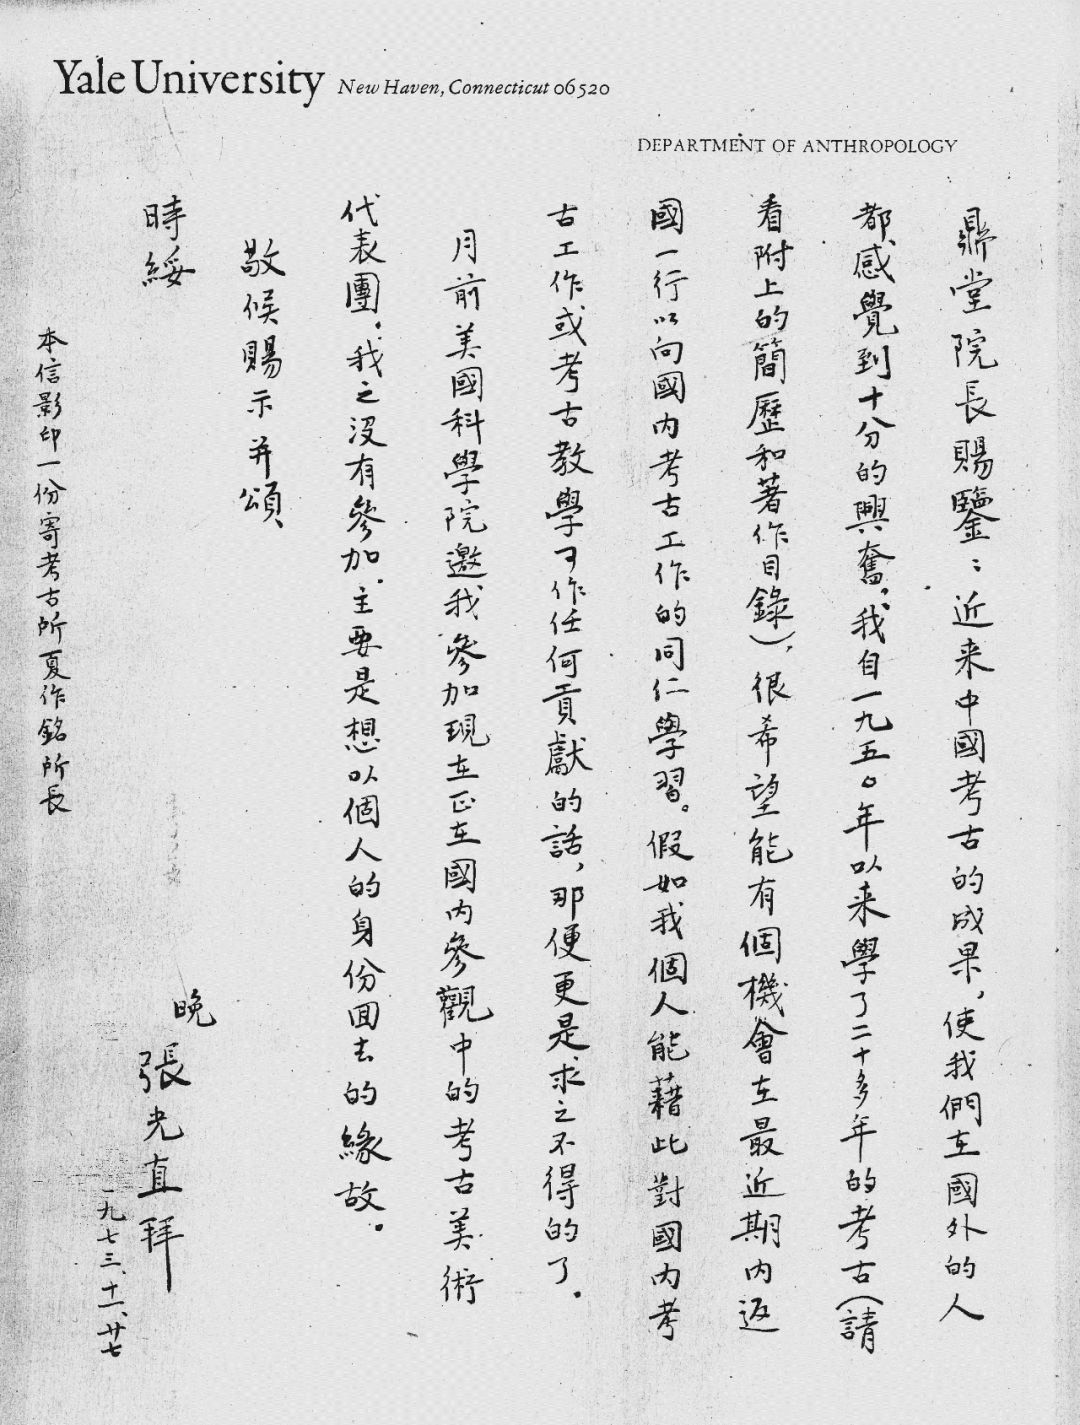 Yale University New Haven, Connecticut 06520
DEPARTMENT OF ANTHROPOLOGY
鼎堂院長賜鑒：近来中國考古的成果，使我們在國外的人
都感覺到十分的興奮，我自一九五〇年以来學了二十多年的考古（請
看附上的簡歷和著作目錄），很希望能有個機會在最近期內返
國一行以向國内考古工作的同仁學習。假如我個人能藉此對國内考
古工作或考古教學可作任何貢獻的話，那便更是求之不得的了。
月前美國科學院邀我參加現在正在國内參觀中的考古美術
代表團，我之沒有參加，主要是想以個人的身份回去的緣故。
敬候賜示并頌
時綏
晚
張光直拜
一九七三、十一、廿七
本信影印一份寄考古所夏作銘所長